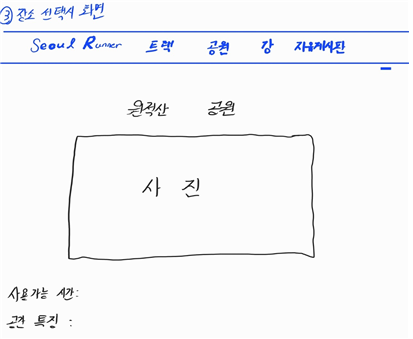 ③ 장소 선택시 화면
Seoul Runner 트랙 공원 강 자유게시판
원적산 공원
사진
사용가능 시간:
공간 특징 :